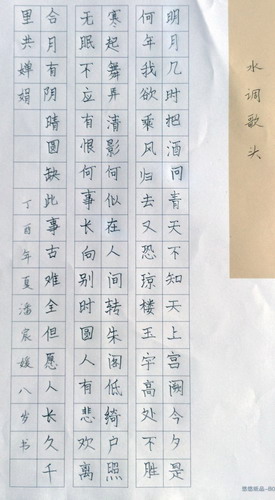 水调歌头
明月几时把酒问青天不知天上宫阙今夕是
何年我欲乘风归去又恐琼楼玉宇高处不胜
寒起舞弄清影何似在人间转朱阁低绮户照
无眠不应有恨何事长向别时圆人有悲欢离
合月有晴圆缺此事古难全但愿人长久千
里共婵娟 丁酉年夏潘宸媛八岁书